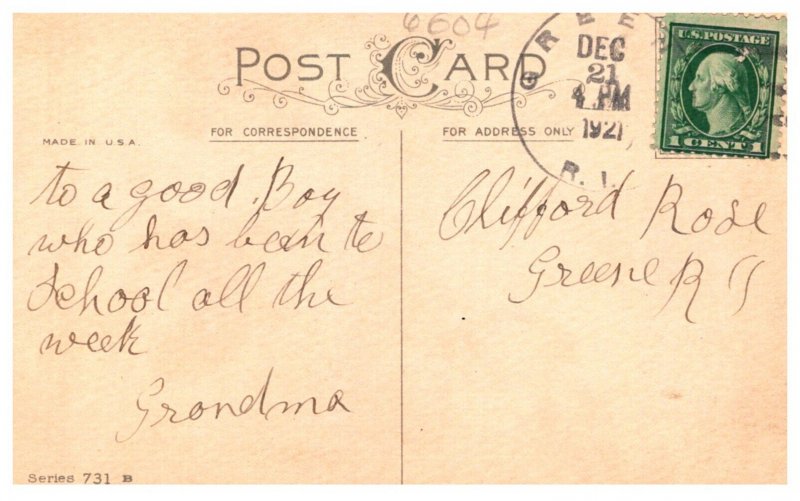 6604
POST CARD
GREENE
DEC
21
4 PM
1921
R.I.
U.S. POSTAGE
1 CENT 1
MADE IN U.S.A.
FOR CORRESPONDENCE
FOR ADDRESS ONLY
to a good Boy
who has been to
School all the
week
Grandma
Clifford Rose
Greene R I
Series 731 B